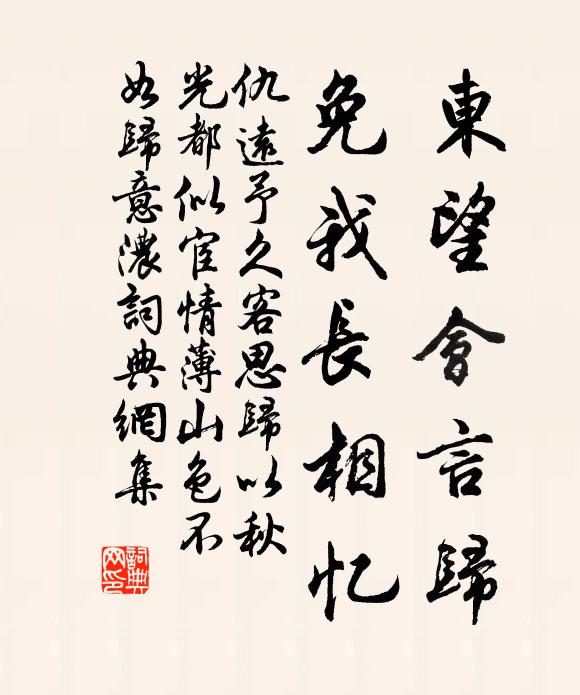 東望會言歸
免我長相忆
仇遠予久客思歸以秋
光都似宦情薄山色不
如歸意濃詞典網集
詞典
网印